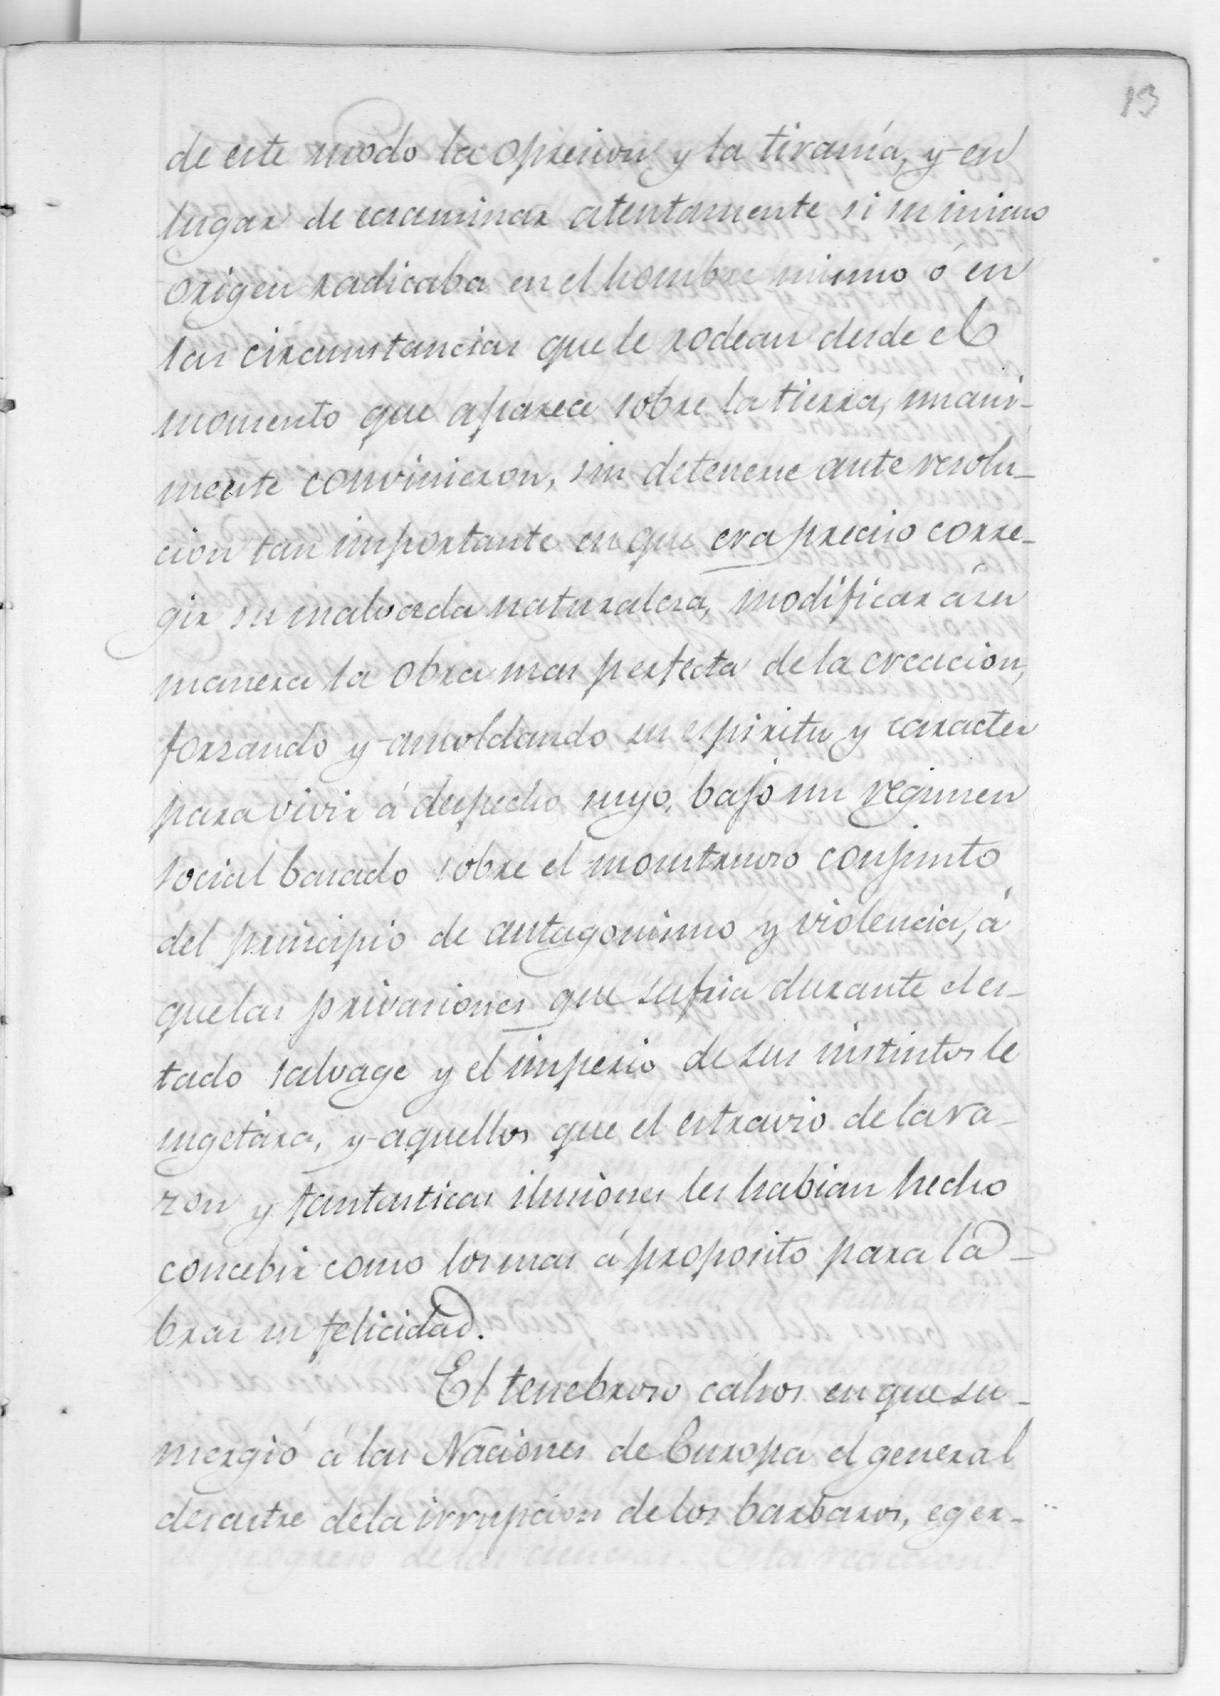 13
de este modo la opresion y la tirania, y en
lugar de ecsaminar atentamente si su inicuo
origen radicaba en el hombre mismo ó en
las circunstancias que le rodean desde el
momento que aparece sobre la tierra, unani-
mente convinieron, sin detenerse ante resolu-
cion tan importante en que era preciso corre-
gir su malvada naturalesa, modificar á su
manera la obra mas perfecta de la creacion,
forsando y amoldando su espiritu y caracter
para vivir á despecho suyo, bajo un regimen
social basado sobre el monstruoso conjunto
del principio de antagonismo y violencia, á
que las privasiones que sufria durante el es-
tado salvage y el imperio de sus instintos le
sugetára, y aquellos que el estravio de la ra-
zon y fantasticas ilusiones les habian hecho
concebir como los mas á proposito para la-
brar su felicidad.
El tenebroso cahos en que su-
mergió á las Naciones de Europa el general
desastre de la irrupcion de los barbaros, eger-